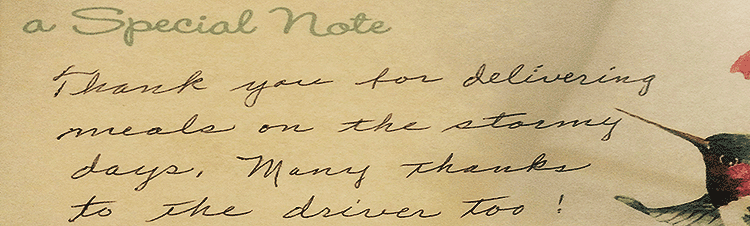 a Special Note
Thank you for delivering
meals on the stormy
days. Many thanks
to the driver too!